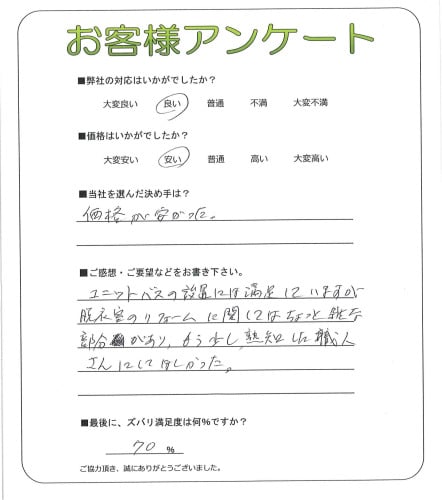 お客様アンケート
■弊社の対応はいかがでしたか?
大変良い 良い 普通 不満 大変不満
■価格はいかがでしたか?
大変安い 安い 普通 高い 大変高い
■当社を選んだ決め手は?
価格が安かった。
■ご感想・ご要望などをお書き下さい。
ユニットバスの設置には満足していますが
脱衣室のリフォームに関してはちょっと雑な
部分があり、もう少し、熟知した職人
さんにしてほしかった。
■最後に、ズバリ満足度は何%ですか?
70 %
ご協力頂き、誠にありがとうございました。